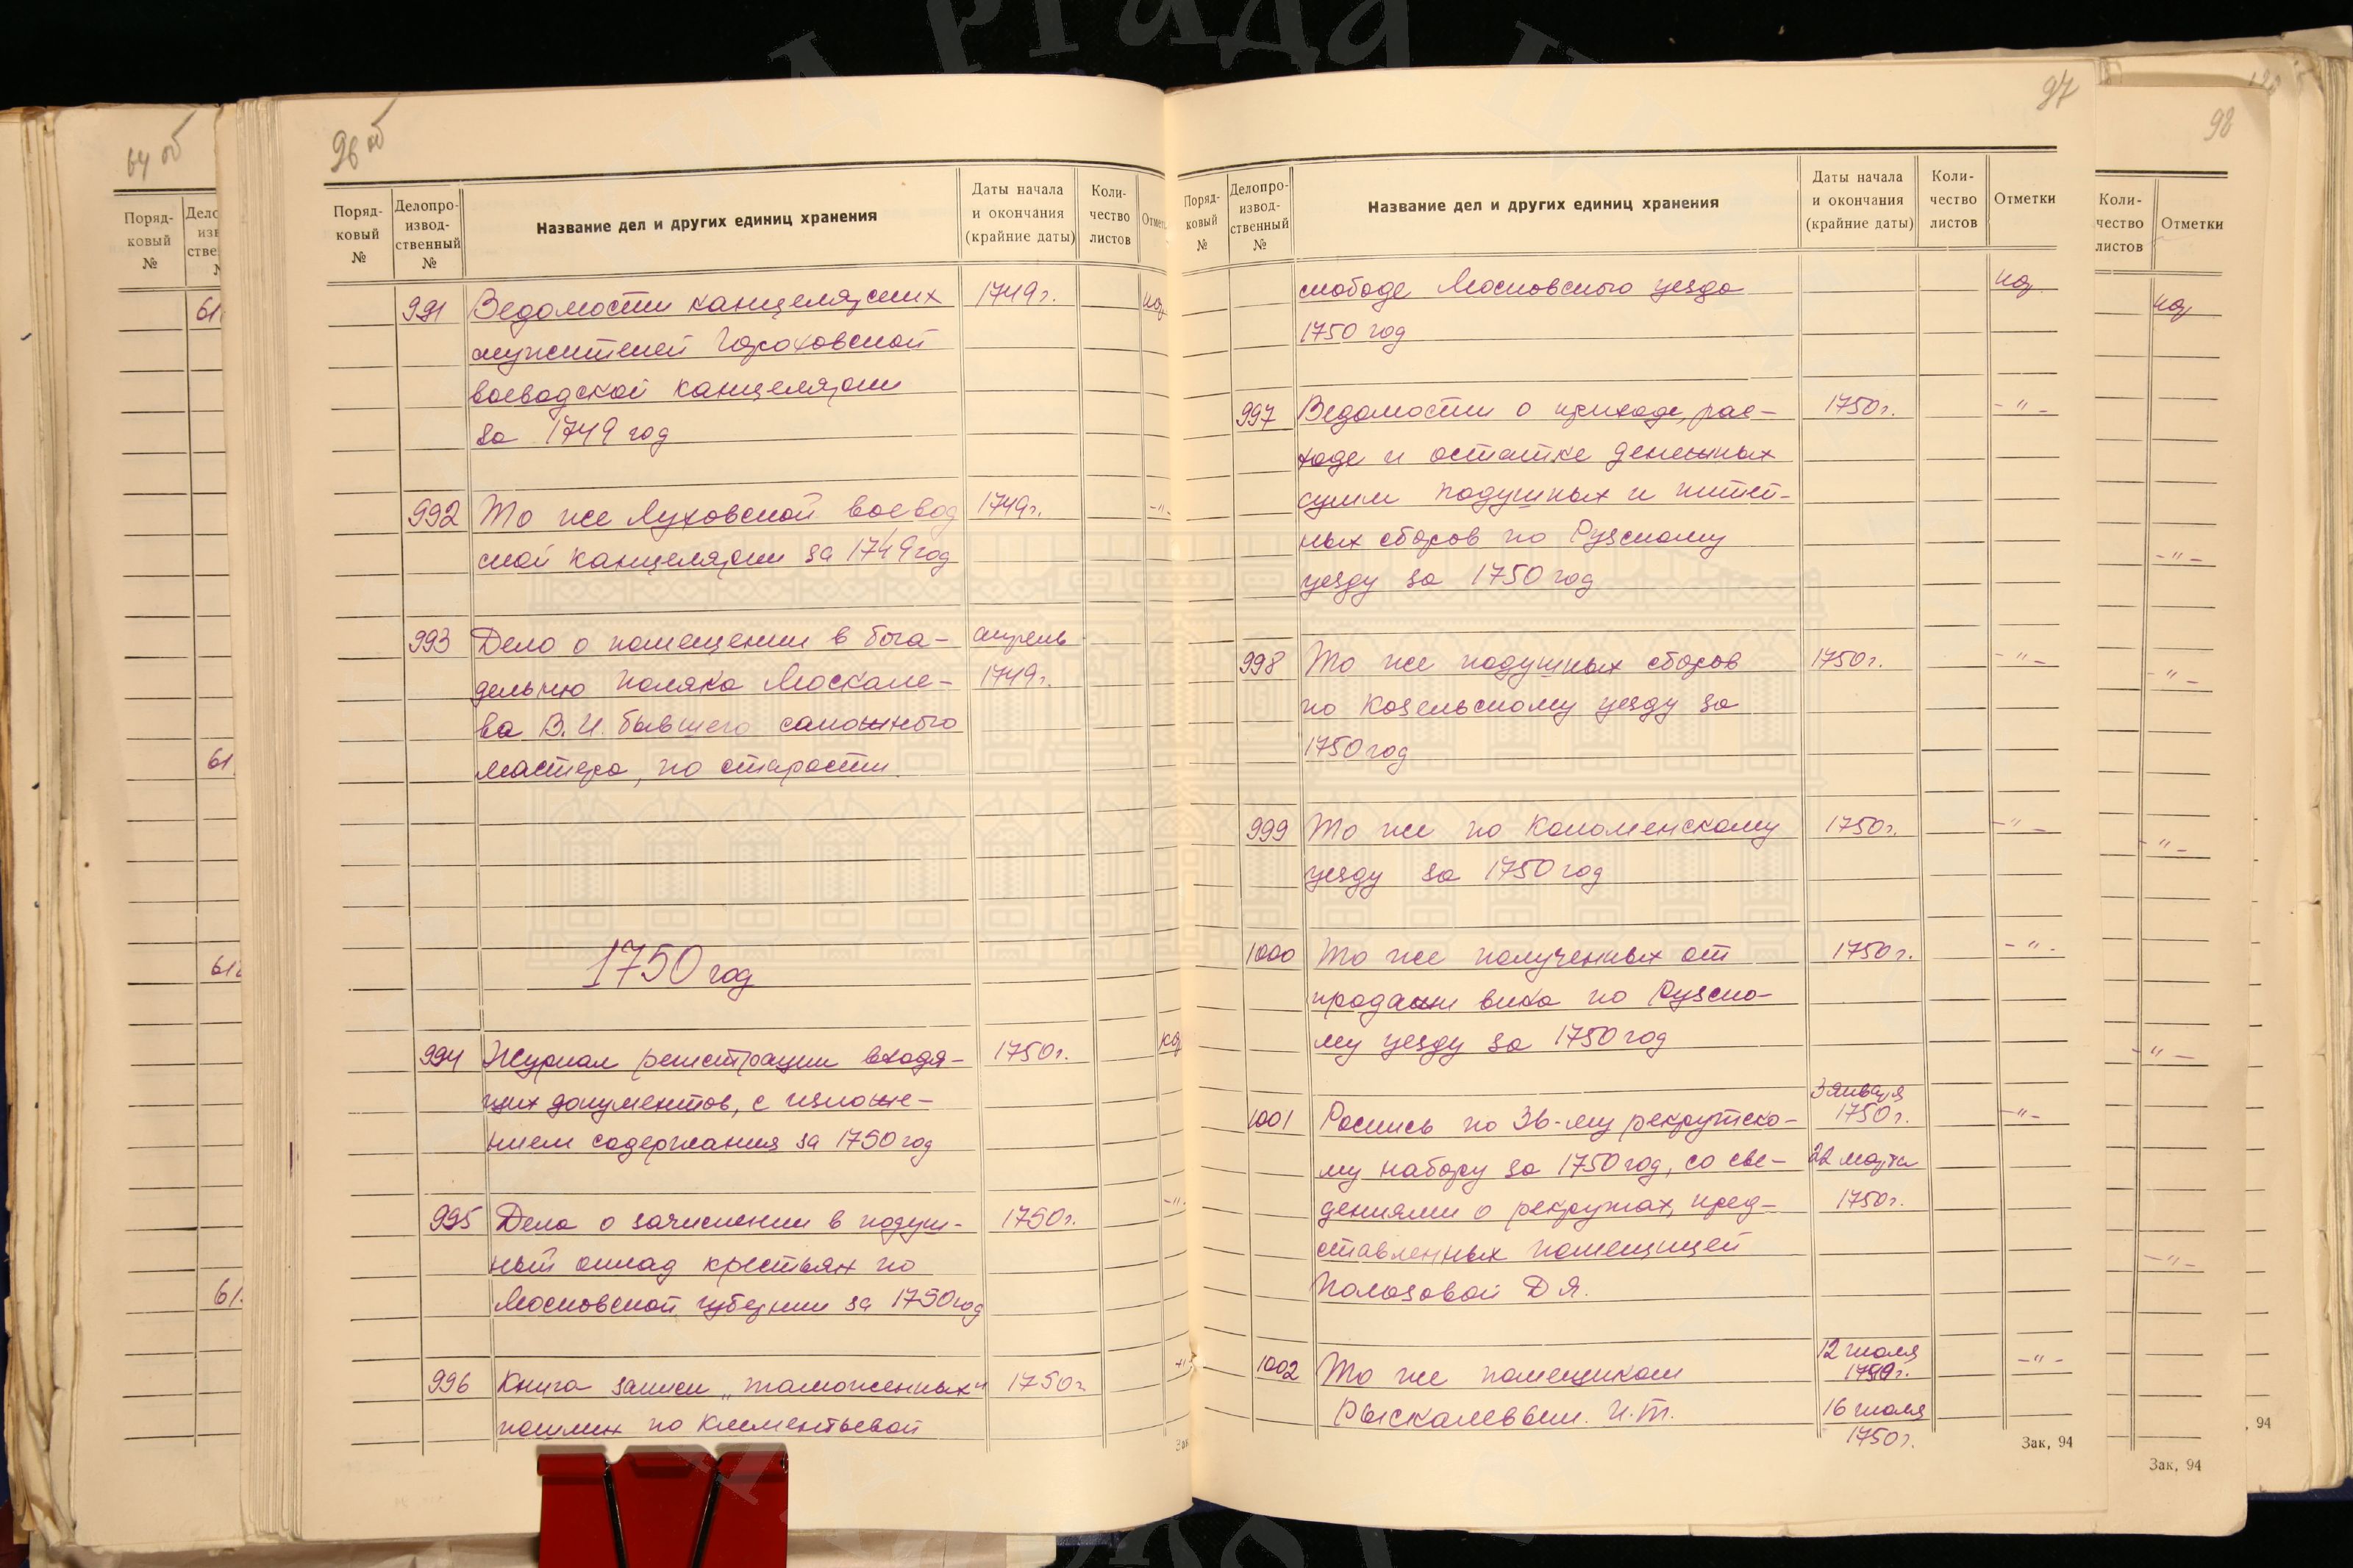 96 об
Поряд-
ковый
№
Делопро-
извод-
ственный
№
Название дел и других единиц хранения
Даты начала
и окончания
(крайние даты)
Коли-
чество
листов
991 Ведомости канцелярских 1749 г.
служителей Гороховской
воеводской канцелярии
за 1749 год
992 То же Луховской воевод 1749 г. -"-
ской канцелярии за 1749 год
993 Дело о помещении в бога- апрель
дельню поляка Москале- 1749 г.
ва В.И. бывшего сапожного
мастера, по старости.
1750 год
994 Журнал регистрации входя- 1750 г.
щих документов, с изложе-
нием содержания за 1750 год
995 Дела о зачислении в подуш- 1750 г. -"-
ный оклад крестьян по
Московской губернии за 1750 год
996 Книга записи „таможенных" 1750 г.
пошлин по Клементьевой
97
Поряд-
ковый
№
Делопро-
извод-
ственный
№
Название дел и других единиц хранения
Даты начала
и окончания
(крайние даты)
Коли-
чество
листов
Отметки
слободе Московского уезда
1750 год
997 Ведомости о приходе, рас- 1750 г. -"-
ходе и остатке денежных
сумм подушных и питей-
ных сборов по Рузскому
уезду за 1750 год
998 То же подушных сборов 1750 г. -"-
по Козельскому уезду за
1750 год
999 То же по Коломенскому 1750 г. -"-
уезду за 1750 год
1000 То же полученных от 1750 г. -"-
продажи вина по Рузско-
му уезду за 1750 год
3 января
1001 Роспись по 36-му рекрутско- 1750 г. -"-
му набору за 1750 год, со све- 22 марта
дениями о рекрутах, пред- 1750 г.
ставленных помещицей
Полозовой Д Я.
12 июля
1002 То же помещиком -"-
Рыскалевым. И.Т. 16 июля
1750 г.
Зак, 94
64 об
Поряд-
ковый
№
98
Коли-
чество
листов
Отметки
Зак, 94